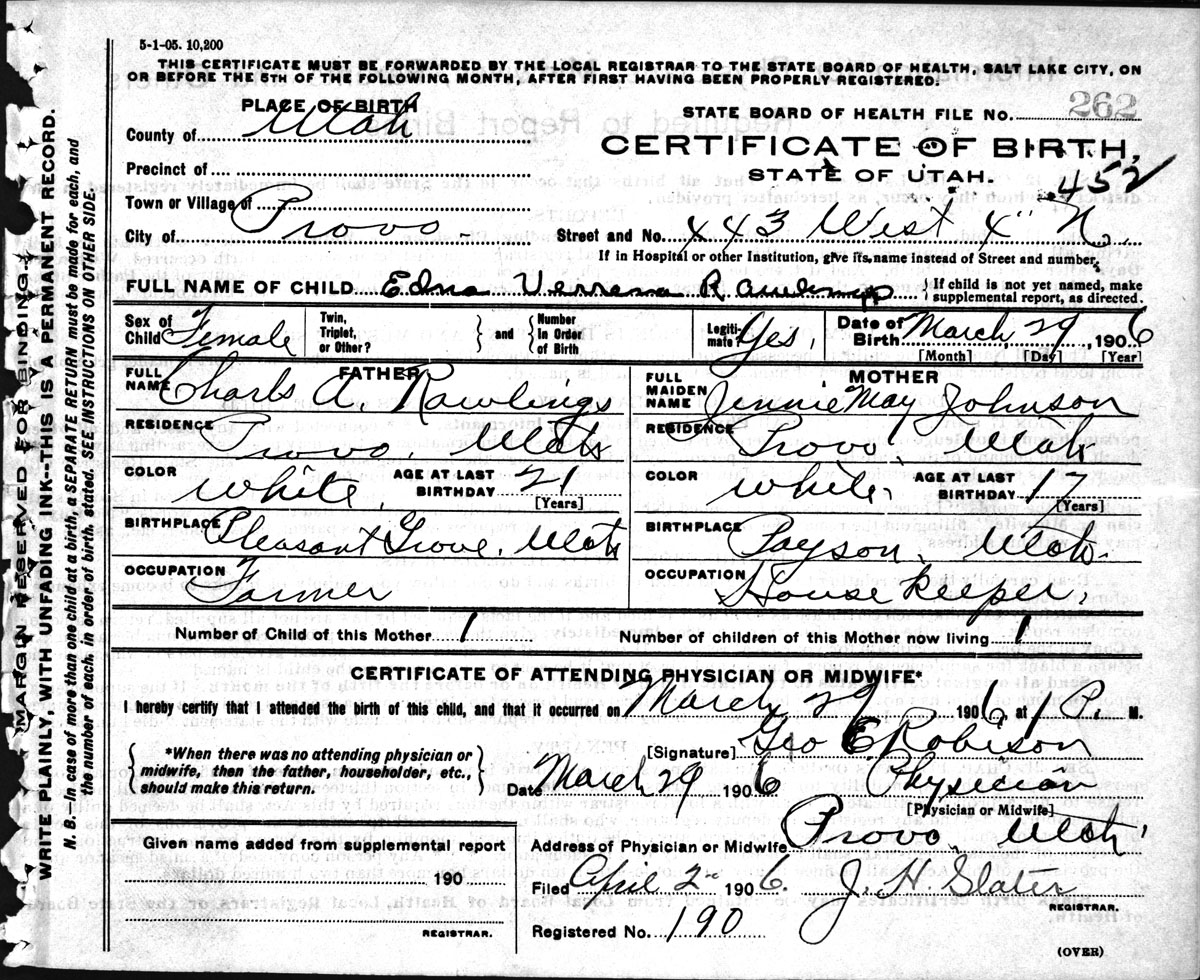 5-1-05. 10,200
THIS CERTIFICATE MUST BE FORWARDED BY THE LOCAL REGISTRAR TO THE STATE BOARD OF HEALTH, SALT LAKE CITY, ON
OR BEFORE THE 5TH OF THE FOLLOWING MONTH, AFTER FIRST HAVING BEEN PROPERLY REGISTERED.
MARGIN RESERVED FOR BINDING.
WRITE PLAINLY, WITH UNFADING INK--THIS IS A PERMANENT RECORD.
N. B. In case of more than one child at a birth, a SEPARATE RETURN must be made for each, and
the number of each, in order of birth, stated. SEE INSTRUCTIONS ON OTHER SIDE.
PLACE OF BIRTH
County of Utah
Precinct of
Town or Village of
City of Provo
STATE BOARD OF HEALTH FILE NO. 262
CERTIFICATE OF BIRTH,
STATE OF UTAH.
452
Street and No. 443 West 4" N.
If in Hospital or other Institution, give its name instead of Street and number.
FULL NAME OF CHILD Edna Verrena Rawlings
If child is not yet named, make
supplemental report, as directed.
Sex of Child Female
Twin, Triplet, or Other?
and
Number in Order of Birth
Legitimate Yes,
Date of Birth March 29, 1906
[Month] [Day] [Year]
FATHER
FULL NAME Charls A. Rawlings
RESIDENCE Provo, Utah
COLOR White,
AGE AT LAST BIRTHDAY 21
[Years]
BIRTHPLACE Pleasant Grove, Utah
OCCUPATION Farmer
MOTHER
FULL MAIDEN NAME Jennie May Johnson
RESIDENCE Provo, Utah
COLOR White,
AGE AT LAST BIRTHDAY 17
[Years]
BIRTHPLACE Payson, Utah.
OCCUPATION House Keeper,
Number of Child of this Mother 1
Number of children of this Mother now living 1
CERTIFICATE OF ATTENDING PHYSICIAN OR MIDWIFE*
I hereby certify that I attended the birth of this child, and that it occurred on March 29 1906, at 1 P. M.
*When there was no attending physician or
midwife, then the father, householder, etc.,
should make this return.
[Signature] Geo E Robison
Date March 29 1906 Physician
[Physician or Midwife]
Address of Physician or Midwife Provo, Utah,
Given name added from supplemental report
190
REGISTRAR.
Filed April 2 1906. J. H. Slater
REGISTRAR.
Registered No. 190
(OVER)